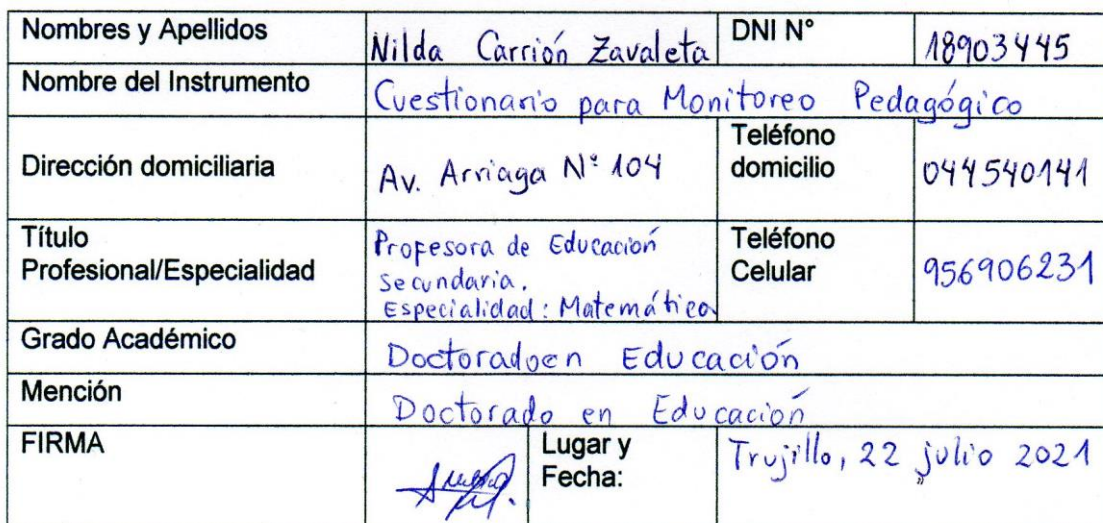 Nombres y Apellidos Nilda Carrión Zavaleta DNI N° 18903445
Nombre del Instrumento Cuestionario para Monitoreo Pedagógico
Dirección domiciliaria Av. Arriaga N° 104 Teléfono
domicilio 044540141
Título
Profesional/Especialidad Profesora de Educación
Secundaria.
Especialidad: Matemática Teléfono
Celular 956906231
Grado Académico Doctorado en Educación
Mención Doctorado en Educación
FIRMA Lugar y
Fecha: Trujillo, 22 julio 2021